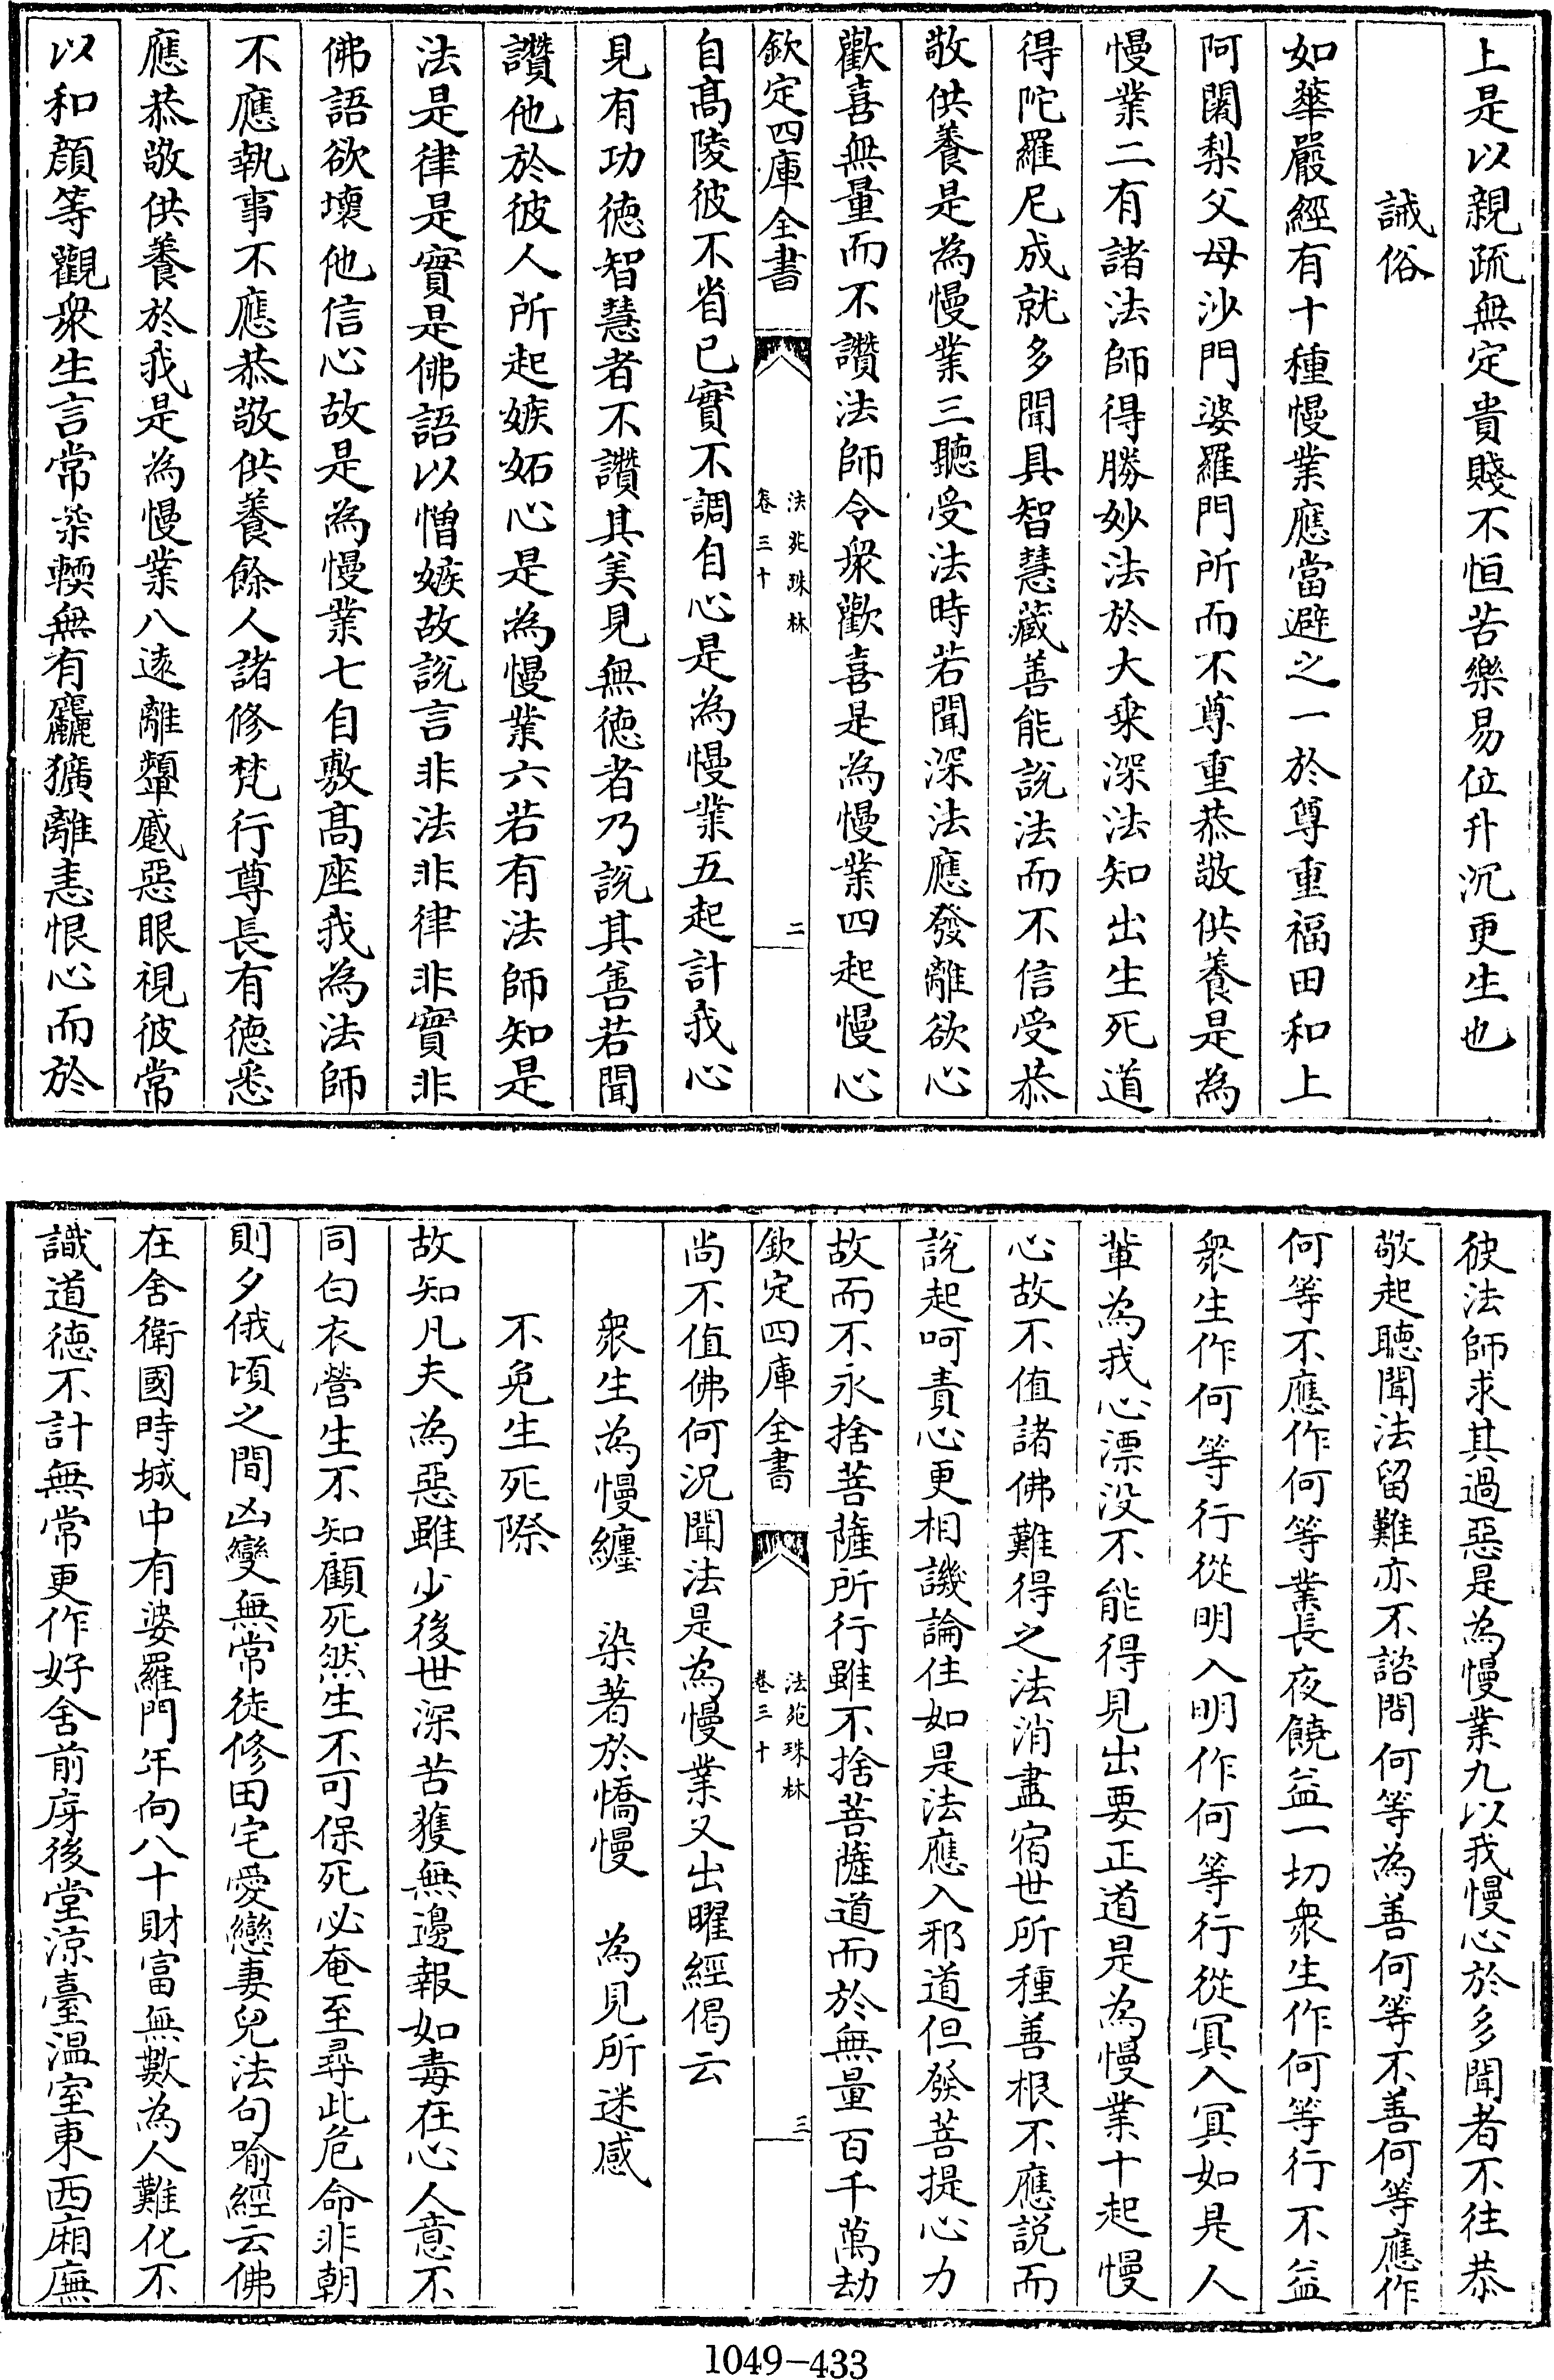 上是以親疏無定貴賤不恒苦樂易位升沉更生也
誡俗
如華嚴經有十種慢業應當避之一於尊重福田和上
阿闍梨父母沙門婆羅門所而不尊重恭敬供養是為
慢業二有諸法師得勝妙法於大乗深法知出生死道
得陀羅尼成就多聞具智慧藏善能說法而不信受恭
敬供養是為慢業三聽受法時若聞深法應發離欲心
歡喜無量而不讚法師令衆歡喜是為慢業四起慢心
欽定四庫全書
法苑珠林
卷三十
二
自髙陵彼不省已實不調自心是為慢業五起計我心
見有功徳智慧者不讚其美見無徳者乃說其善若聞
讚他於彼人所起嫉妬心是為慢業六若有法師知是
法是律是實是佛語以憎嫉故說言非法非律非實非
佛語欲壞他信心故是為慢業七自敷髙座我為法師
不應執事不應恭敬供養餘人諸修梵行尊長有徳悉
應恭敬供養於我是為慢業八逺離顰蹙惡眼視彼常
以和顔等觀衆生言常柔輭無有麤獷離恚恨心而於
彼法師求其過惡是為慢業九以我慢心於多聞者不往恭
敬起聽聞法留難亦不諮問何等為善何等不善何等應作
何等不應作何等業長夜饒益一切衆生作何等行不益
衆生作何等行從明入明作何等行從冥入冥如是人
輩為我心漂没不能得見出要正道是為慢業十起慢
心故不值諸佛難得之法消盡宿世所種善根不應説而
說起呵責心更相譏論住如是法應入邪道但發菩提心力
故而不永捨菩薩所行雖不捨菩薩道而於無量百千萬劫
欽定四庫全書
法苑珠林
卷三十
三
尚不值佛何況聞法是為慢業又出曜經偈云
衆生為慢纏　染著於憍慢　為見所迷惑
不免生死際
故知凡夫為惡雖少後世深苦獲無邊報如毒在心人意不
同白衣營生不知顧死然生不可保死必奄至尋此危命非朝
則夕俄頃之間凶變無常徒修田宅愛戀妻兒法句喻經云佛
在舍衛國時城中有婆羅門年向八十財富無數為人難化不
識道徳不計無常更作好舍前庌後堂涼臺温室東西廂廡
1049-433